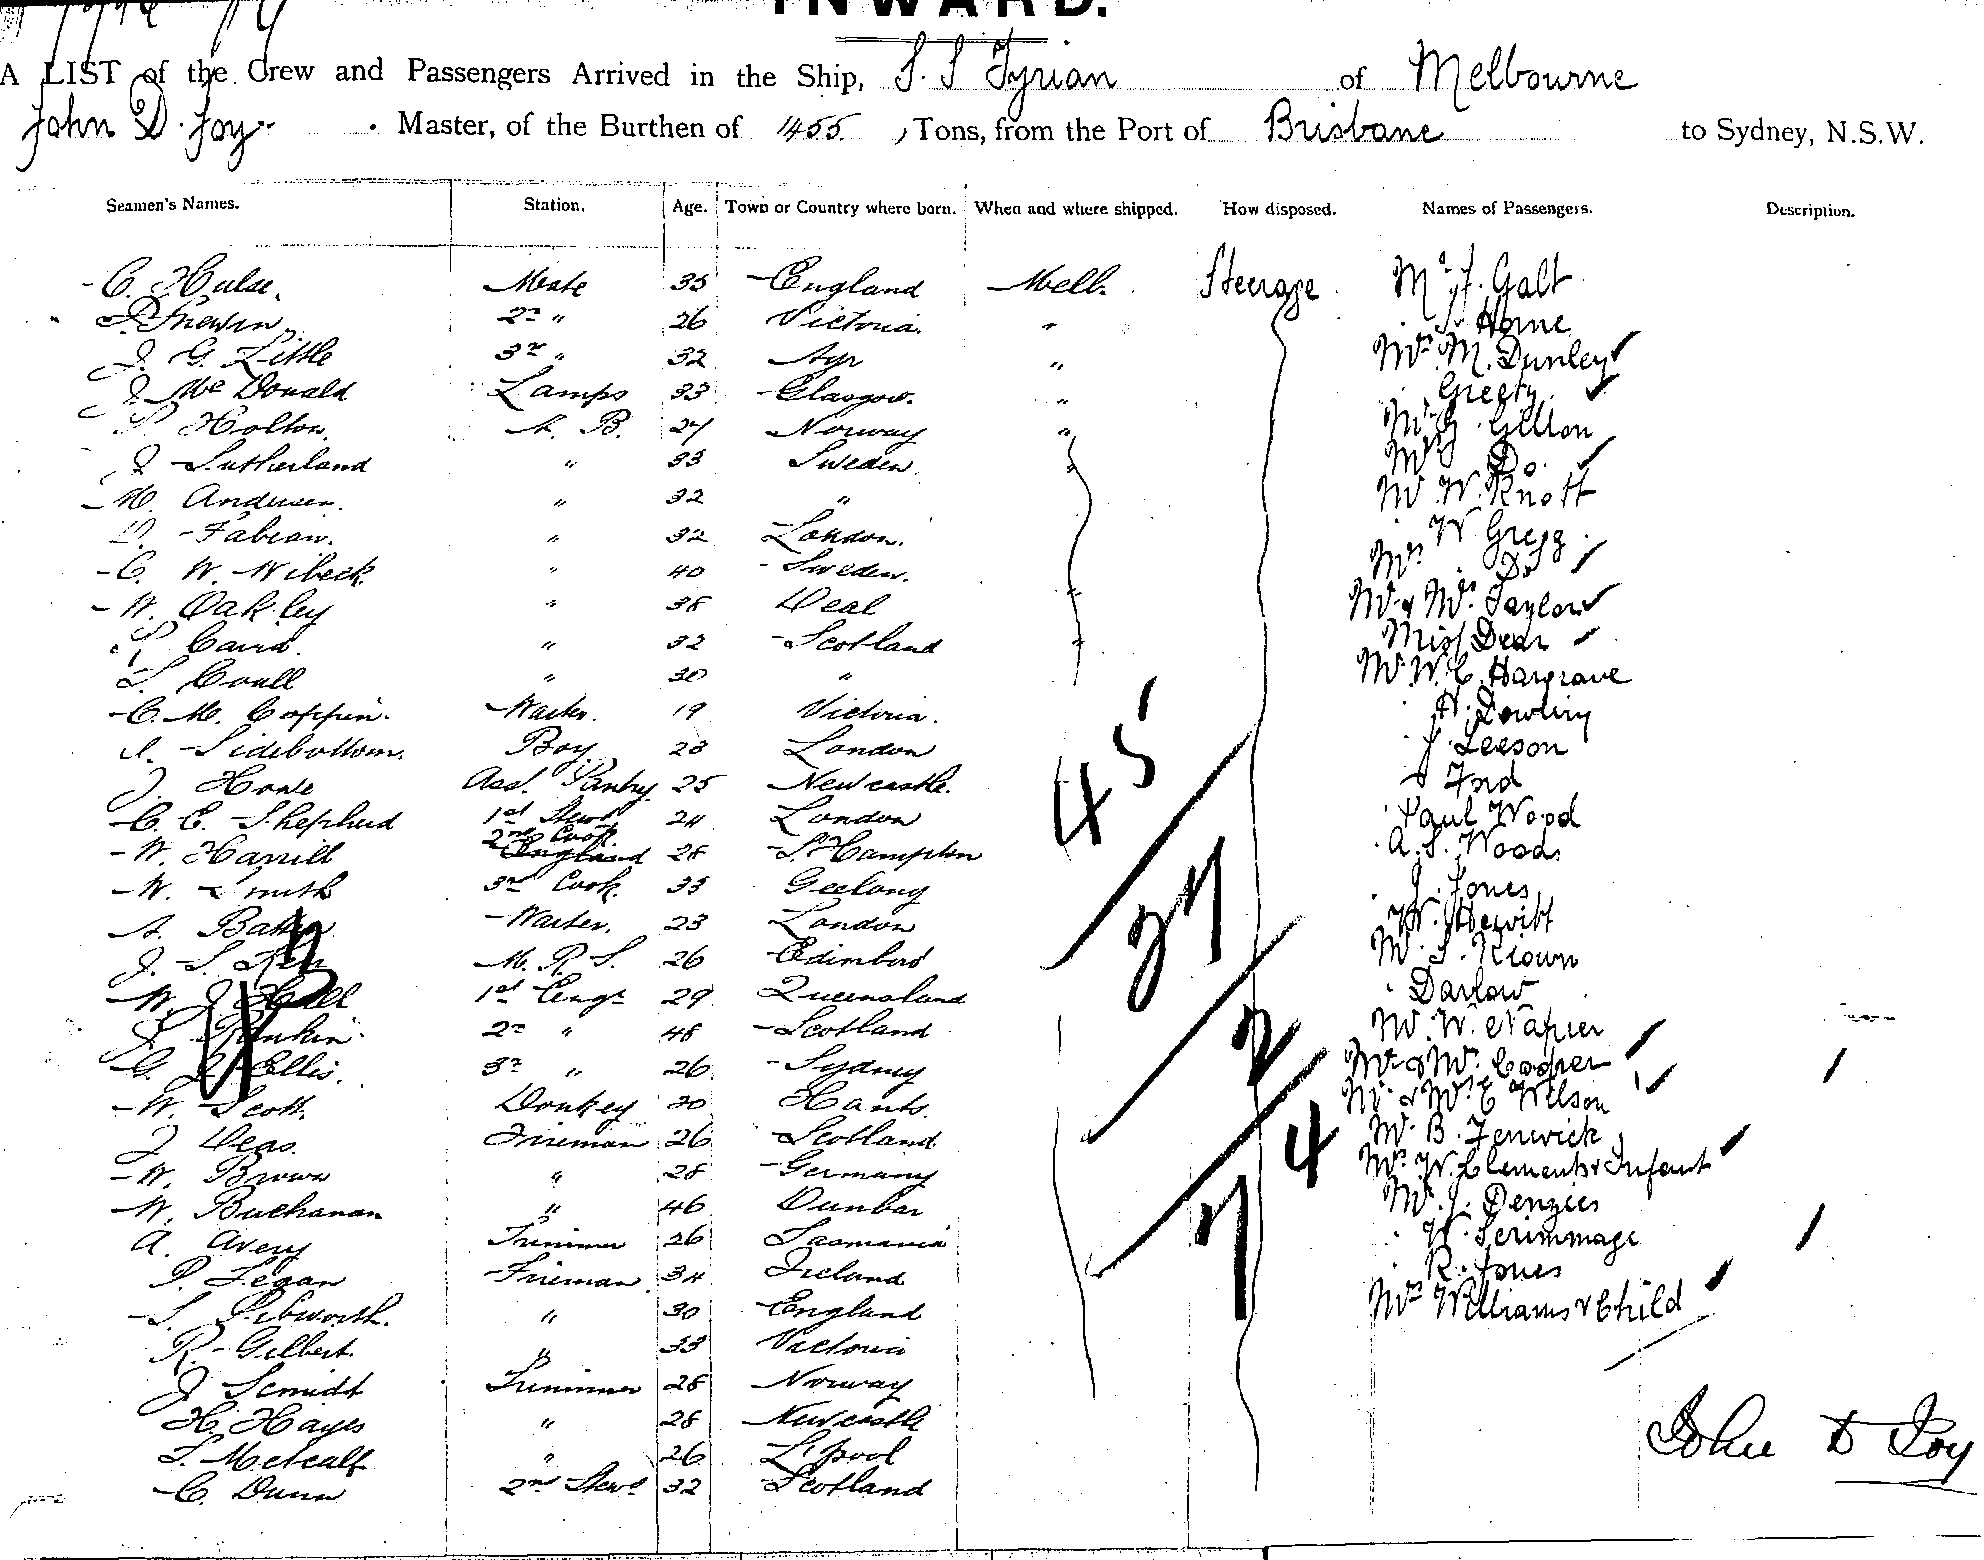 INWARD.
A LIST of the Crew and Passengers Arrived in the Ship, S.S Tyrian of Melbourne
John D. Joy Master, of the Burthen of 1455 Tons, from the Port of Brisbane to Sydney, N.S.W.
Seamen's Names. Station. Age. Town or Country where born. When and where shipped. How disposed. Names of Passengers. Description.
C. Hulse. Mate 35 England Melb. Steerage Mr J. Galt
2nd " 26 Victoria. " Horne
J. G. Little 3rd " 32 Ayr " Mrs M. Dunley
J. McDonald Lamps 33 Glasgow. " Greety
Holton. A. B. 27 Norway " Mr G. Gillon
J Sutherland " 33 Sweden. " Mrs Do.
M. Andersen. " 32 " Mr W. Knott
Fabian. " 32 London. W Gregg
C. W. Wibeck " 40 Sweden. " Mrs Do
W. Oakley " 38 Deal Mr & Mrs Taylor
Caird. " 32 Scotland " Miss Dear
Coull " 30 " Mr W. C. Hargrave
C. M. Coppin. Waiter. 19 Victoria. H. Dowling
A. Sidebottom. Boy 23 London J. Leeson
J. Howe Asst. Pantry 25 Newcastle. Ford
C. E. Shepherd 1st Stewd 24 London Paul Wood
W. Harrill 2nd Cook England 28 S. Hampton A. S. Woods
W. Smith 3rd Cook. 33 Geelong J. Jones
A. Baker Waiter. 23 London W. Hewitt
J. S. M. R. S. 26 Edinbord Mr S. Krown
W. J. Hall 1st Engr 29 Queensland Darlow
Rankin. 2nd " 48 Scotland Mr W. Napier
G. Ellis. 3rd " 26 Sydney Mr & Mrs Cooper
W. Scott. Donkey 30 Hants. Mr & Mrs E Wilson
J Deas. Fireman 26 Scotland Mr B. Fenwick
W. Brown " 28 Germany Mrs W. Clements & Infant
W. Buchanan " 46 Dunbar Mr J. Denzies
A. Avery Trimmer 26 Tasmania W. Scrimmage
P. Fegan Fireman 34 Ireland R. Jones
S. Pibworth. " 30 England Mrs Williams & Child
R. Gilbert. " 33 Victoria
J Scmidt Trimmer 28 Norway
H. Hayes " 28 Newcastle
Metcalf " 26 L'pool
C. Dunn 2nd Stewd 32 Scotland
45
37
2
4
7
John D Joy